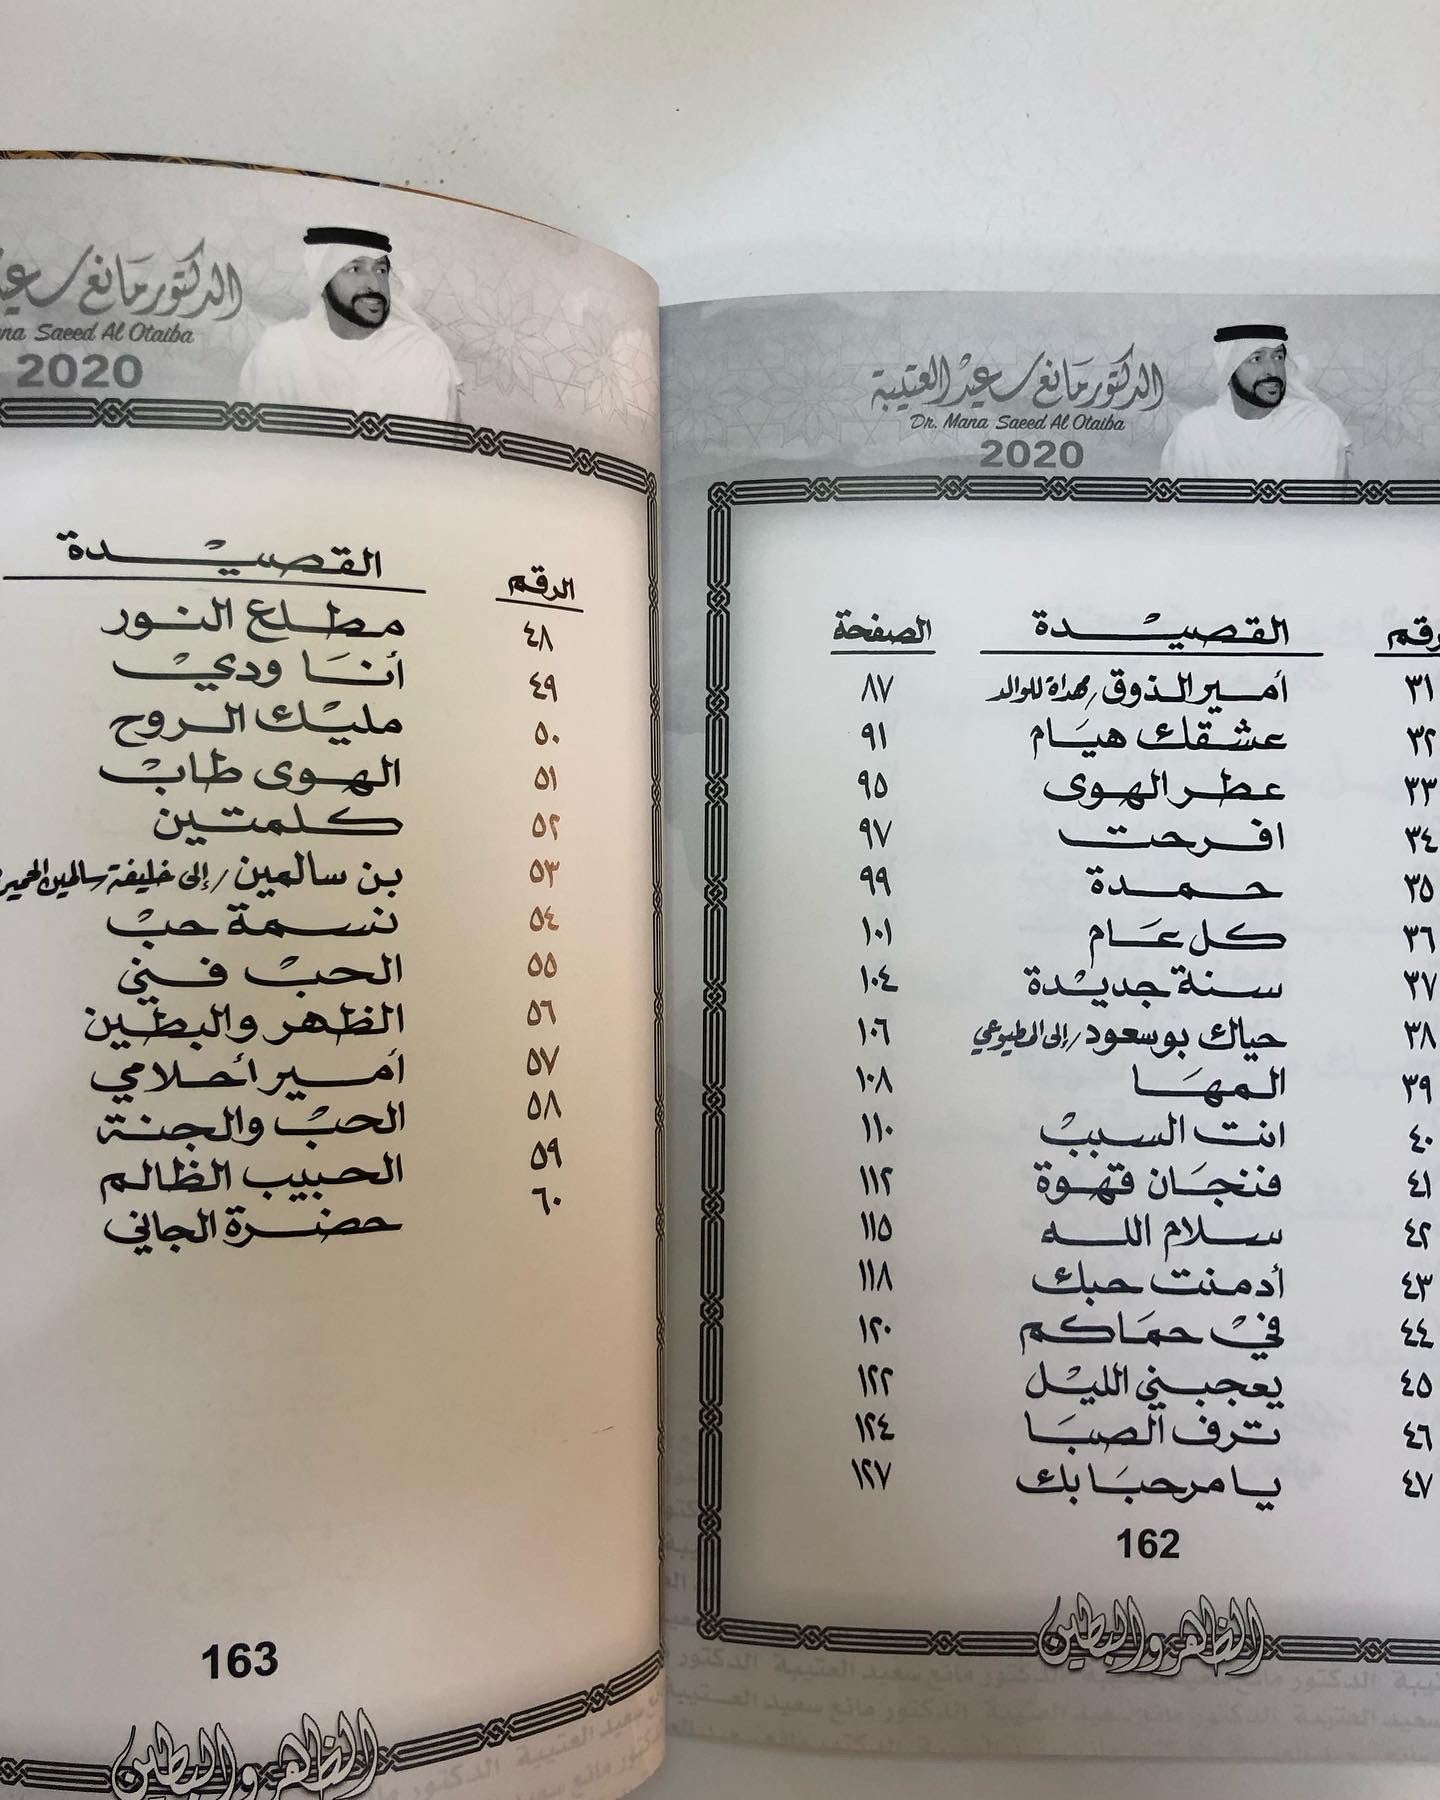 الدكتور مانع سعيد العتيبة
Dr. Mana Saeed Al Otaiba
2020
رقم القصيدة الصفحة
٣١ أمير الذوق / مهداة للوالد ٨٧
٣٢ عشقك هيام ٩١
٣٣ عطر الهوى ٩٥
٣٤ افرحت ٩٧
٣٥ حمدة ٩٩
٣٦ كل عام ١٠١
٣٧ سنة جديدة ١٠٤
٣٨ حياك بوسعود / إلى المطيوعي ١٠٦
٣٩ المها ١٠٨
٤٠ انت السبب ١١٠
٤١ فنجان قهوة ١١٢
٤٢ سلام الله ١١٥
٤٣ أدمنت حبك ١١٨
٤٤ في حماكم ١٢٠
٤٥ يعجبني الليل ١٢٢
٤٦ ترف الصبا ١٢٤
٤٧ يا مرحبا بك ١٢٧
162
الظاهر والبطين
الدكتور مانع سعيد
na Saeed Al Otaiba
2020
الرقم القصيدة
٤٨ مطلع النور
٤٩ أنا ودي
٥٠ مليك الروح
٥١ الهوى طاب
٥٢ كلمتين
٥٣ بن سالمين / إلى خليفة سالمين
٥٤ نسمة حب
٥٥ الحب فني
٥٦ الظهر والبطين
٥٧ أمير أحلامي
٥٨ الحب والجنة
٥٩ الحبيب الظالم
٦٠ حضرة الجاني
163
الظاهر والبطين